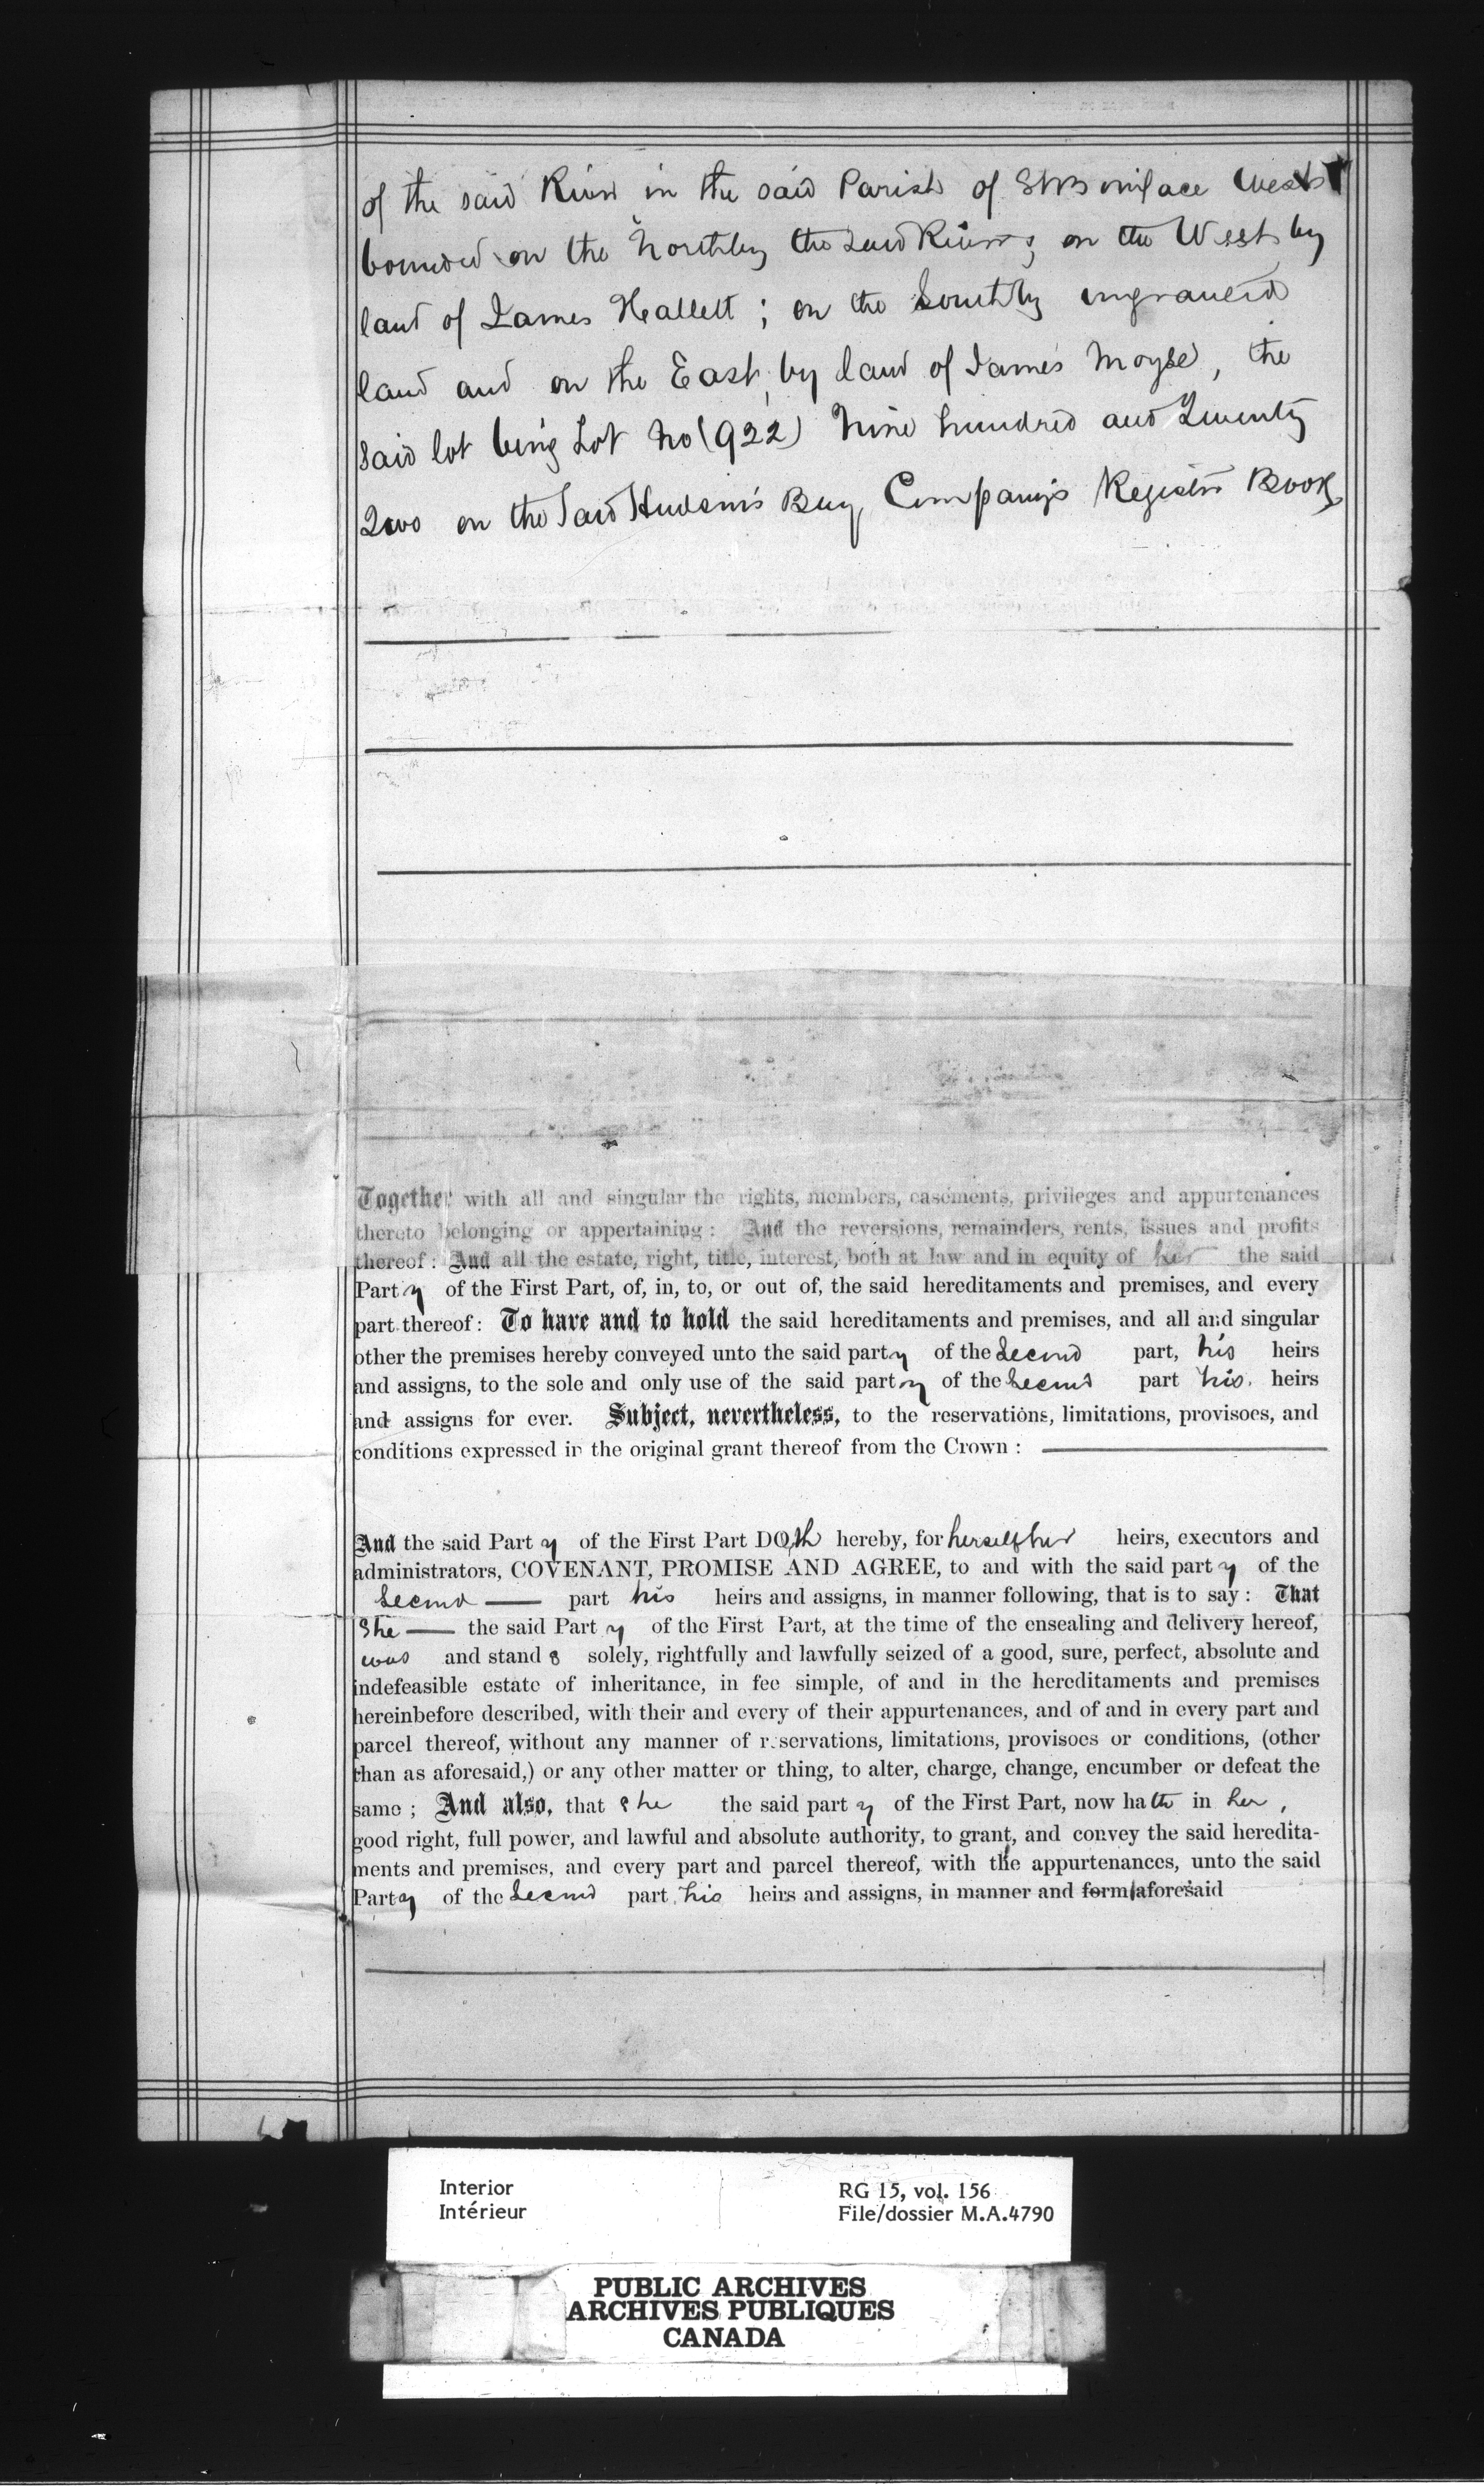 of the said River in the said Parish of St Boniface West
bounded on the North by the said River; on the West by
land of James Hallett; on the South by ungranted
land and on the East by land of James Moyse, the
said lot being Lot No (922) Nine hundred and Twenty
Two on the said Hudson's Bay Company's Register Book
Together with all and singular the rights, members, easements, privileges and appurtenances
thereto belonging or appertaining: And the reversions, remainders, rents, issues and profits
thereof: And all the estate, right, title, interest, both at law and in equity of her the said
Party of the First Part, of, in, to, or out of, the said hereditaments and premises, and every
part thereof: To have and to hold the said hereditaments and premises, and all and singular
other the premises hereby conveyed unto the said party of the Second part, his heirs
and assigns, to the sole and only use of the said party of the Second part his heirs
and assigns for ever. Subject, nevertheless, to the reservations, limitations, provisoes, and
conditions expressed in the original grant thereof from the Crown:
And the said Party of the First Part DOth hereby, for herself her heirs, executors and
administrators, COVENANT, PROMISE AND AGREE, to and with the said party of the
Second part his heirs and assigns, in manner following, that is to say: That
She the said Party of the First Part, at the time of the ensealing and delivery hereof,
was and stands solely, rightfully and lawfully seized of a good, sure, perfect, absolute and
indefeasible estate of inheritance, in fee simple, of and in the hereditaments and premises
hereinbefore described, with their and every of their appurtenances, and of and in every part and
parcel thereof, without any manner of reservations, limitations, provisoes or conditions, (other
than as aforesaid,) or any other matter or thing, to alter, charge, change, encumber or defeat the
same; And also, that she the said party of the First Part, now hath in her,
good right, full power, and lawful and absolute authority, to grant, and convey the said heredita-
ments and premises, and every part and parcel thereof, with the appurtenances, unto the said
Party of the Second part his heirs and assigns, in manner and form aforesaid
Interior
Intérieur
RG 15, vol. 156
File/dossier M.A.4790
PUBLIC ARCHIVES
ARCHIVES PUBLIQUES
CANADA